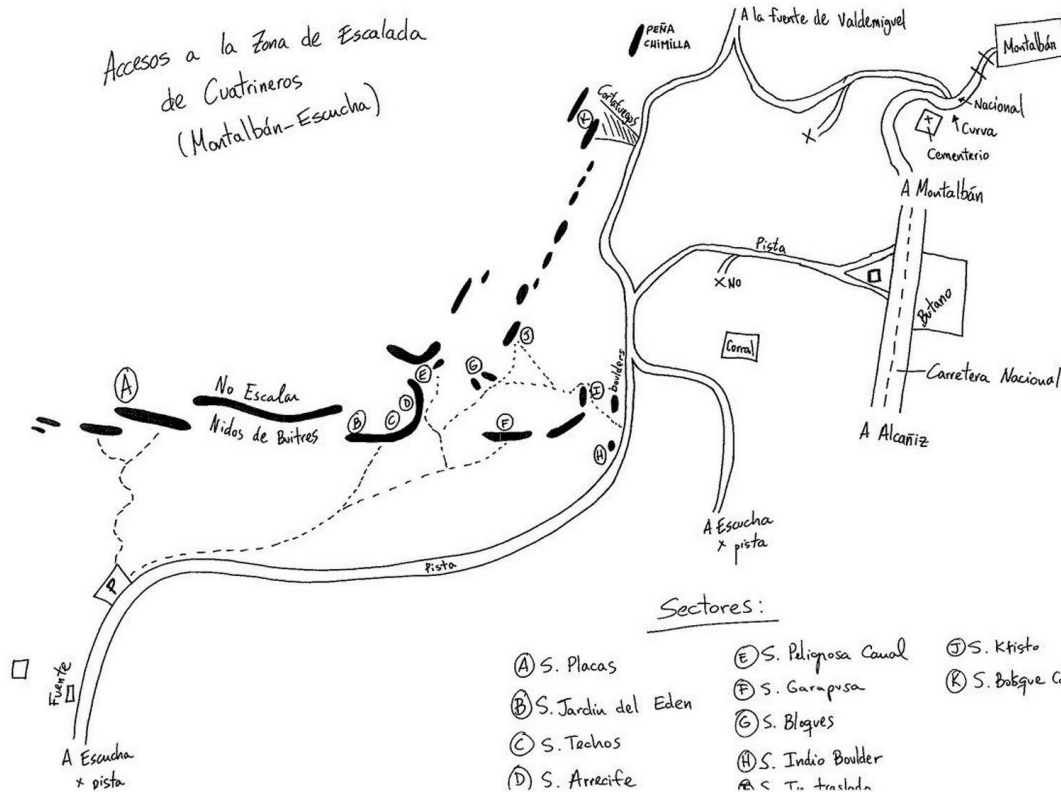 Accesos a la Zona de Escalada
de Cuatrineros
(Montalbán-Escucha)
PEÑA
CHIMILLA
A la fuente de Valdemiguel
Montalbán
Nacional
Curva
Cementerio
Cortafuegos
K
X
A Montalbán
Pista
X NO
Butano
Corral
Carretera Nacional
A Alcañiz
J
E
G
I
boulders
A
No Escalar
Nidos de Buitres
D
B
C
F
H
A Escucha
x pista
Pista
P
Fuente
A Escucha
x pista
Sectores:
A S. Placas
B S. Jardin del Eden
C S. Techos
D S. Arrecife
E S. Peligrosa Canal
F S. Garapusa
G S. Bloques
H S. Indio Boulder
J S. Kristo
K S. Bosque